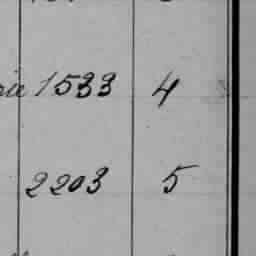 1533 4
2203 5